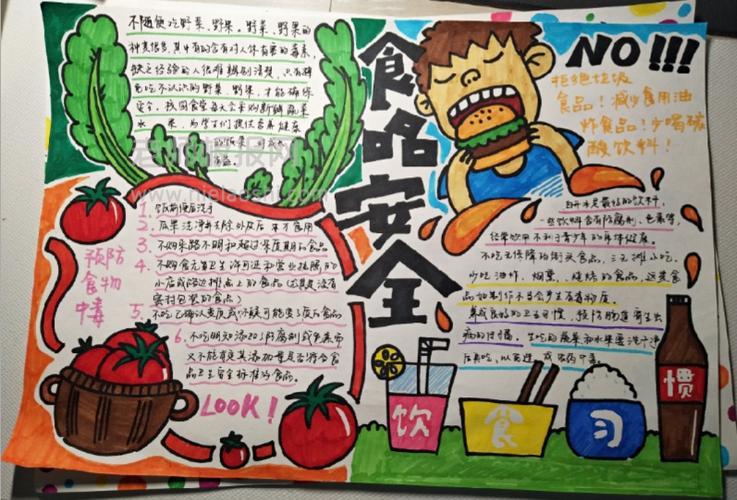 不随便吃野菜、野果、野菜、野果的
种类很多,其中有的含有对人体有害的毒素,
缺乏经验的人很难辨别清楚,只有避
免吃不认识的野菜,野果,才能确保
安全。
www.
食
品
安
全
NO!!!
拒绝垃圾
食品!减少食用油
炸食品!少喝碳
酸饮料!
预防
食物
中毒
1、饭前便后洗手
2、瓜果洗净并去除外皮后才食用
3、不购来路不明和超过保质期的食品
4、不购食无卫生许可证和营业执照的
小店或路边摊点上的食品(尤其是没有
密封包装的食品)
5、不吃已确认变质或怀疑可能变了质的食品
6、不吃明知添加了防腐剂或色素而
又不能肯定其添加量是否符合食
品卫生安全标准的食品。
LOOK!
白开水是最好的饮料,
一些饮料含有防腐剂、色素等,
经常饮用不利于青少年的身体健康。
不吃无保障的街头食品,
少吃油炸、烟熏、烧烤的食品,这类食
品如制作不当会产生有毒物质。
养成良好的卫生习惯,预防肠道寄生虫
病的传播。生吃的蔬菜和水果要洗干净
后再吃,以免造成
饮
食
习
惯